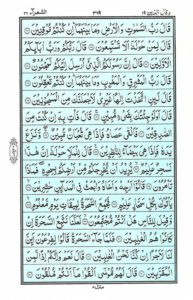 وقال الذين ١٩ ٣٦٩ الشعرآء ٢٦
قَالَ رَبُّ السَّمٰوٰتِ وَالْاَرْضِ وَمَا بَيْنَهُمَا ؕ اِنْ كُنْتُمْ مُّوْقِنِيْنَ
قَالَ لِمَنْ حَوْلَهٗۤ اَلَا تَسْتَمِعُوْنَ قَالَ رَبُّكُمْ وَرَبُّ اٰبَآئِكُمُ
الْاَوَّلِيْنَ قَالَ اِنَّ رَسُوْلَكُمُ الَّذِيْۤ اُرْسِلَ اِلَيْكُمْ لَمَجْنُوْنٌ
قَالَ رَبُّ الْمَشْرِقِ وَالْمَغْرِبِ وَمَا بَيْنَهُمَا ؕ اِنْ كُنْتُمْ تَعْقِلُوْنَ
قَالَ لَئِنِ اتَّخَذْتَ اِلٰهًا غَيْرِيْ لَاَجْعَلَنَّكَ مِنَ الْمَسْجُوْنِيْنَ
قَالَ اَوَلَوْ جِئْتُكَ بِشَيْءٍ مُّبِيْنٍ قَالَ فَاْتِ بِهٖۤ اِنْ كُنْتَ مِنَ
الصّٰدِقِيْنَ فَاَلْقٰى عَصَاهُ فَاِذَا هِيَ ثُعْبَانٌ مُّبِيْنٌ وَّنَزَعَ
يَدَهٗ فَاِذَا هِيَ بَيْضَآءُ لِلنّٰظِرِيْنَ قَالَ لِلْمَلَاِ حَوْلَهٗۤ اِنَّ هٰذَا
لَسٰحِرٌ عَلِيْمٌ يُّرِيْدُ اَنْ يُّخْرِجَكُمْ مِّنْ اَرْضِكُمْ بِسِحْرِهٖ فَمَا ذَا
تَاْمُرُوْنَ قَالُوْۤا اَرْجِهْ وَاَخَاهُ وَابْعَثْ فِي الْمَدَآئِنِ حٰشِرِيْنَ
يَاْتُوْكَ بِكُلِّ سَحَّارٍ عَلِيْمٍ فَجُمِعَ السَّحَرَةُ لِمِيْقَاتِ يَوْمٍ مَّعْلُوْمٍ
وَّقِيْلَ لِلنَّاسِ هَلْ اَنْتُمْ مُّجْتَمِعُوْنَ لَعَلَّنَا نَتَّبِعُ السَّحَرَةَ اِنْ
كَانُوْا هُمُ الْغٰلِبِيْنَ فَلَمَّا جَآءَ السَّحَرَةُ قَالُوْا لِفِرْعَوْنَ اَئِنَّ
لَنَا لَاَجْرًا اِنْ كُنَّا نَحْنُ الْغٰلِبِيْنَ قَالَ نَعَمْ وَاِنَّكُمْ اِذًا لَّمِنَ
الْمُقَرَّبِيْنَ قَالَ لَهُمْ مُّوْسٰۤى اَلْقُوْا مَاۤ اَنْتُمْ مُّلْقُوْنَ
منزل ٥